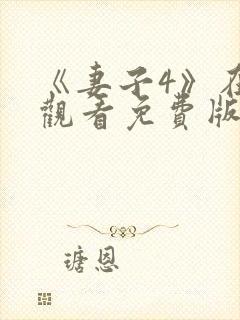 《妻子4》在
觀看免費版
瑭恩